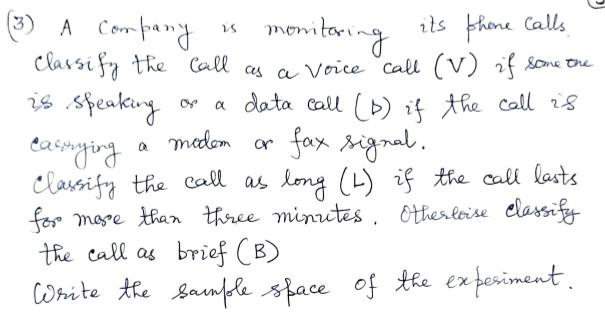 (3) A Company is monitoring its phone calls.
Classify the call as a voice call (V) if some one
is speaking or a data call (D) if the call is
carrying a modem or fax signal.
Classify the call as long (L) if the call lasts
for more than three minutes. Otherwise classify
the call as brief (B)
Write the sample space of the experiment.